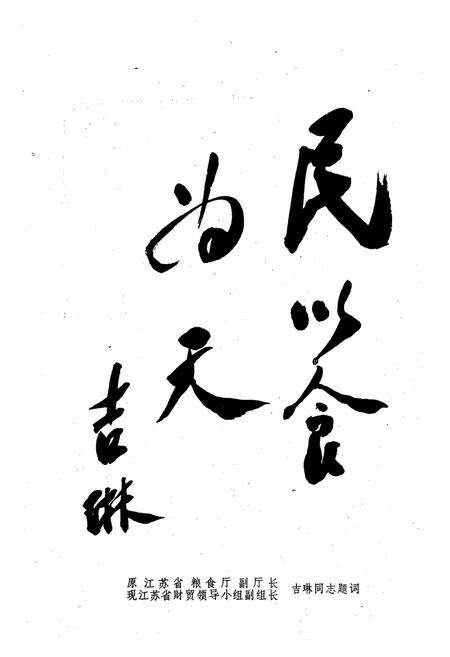 民以食
为天
吉琳
原江苏省粮食厅副厅长
现江苏省财贸领导小组副组长
吉琳同志题词